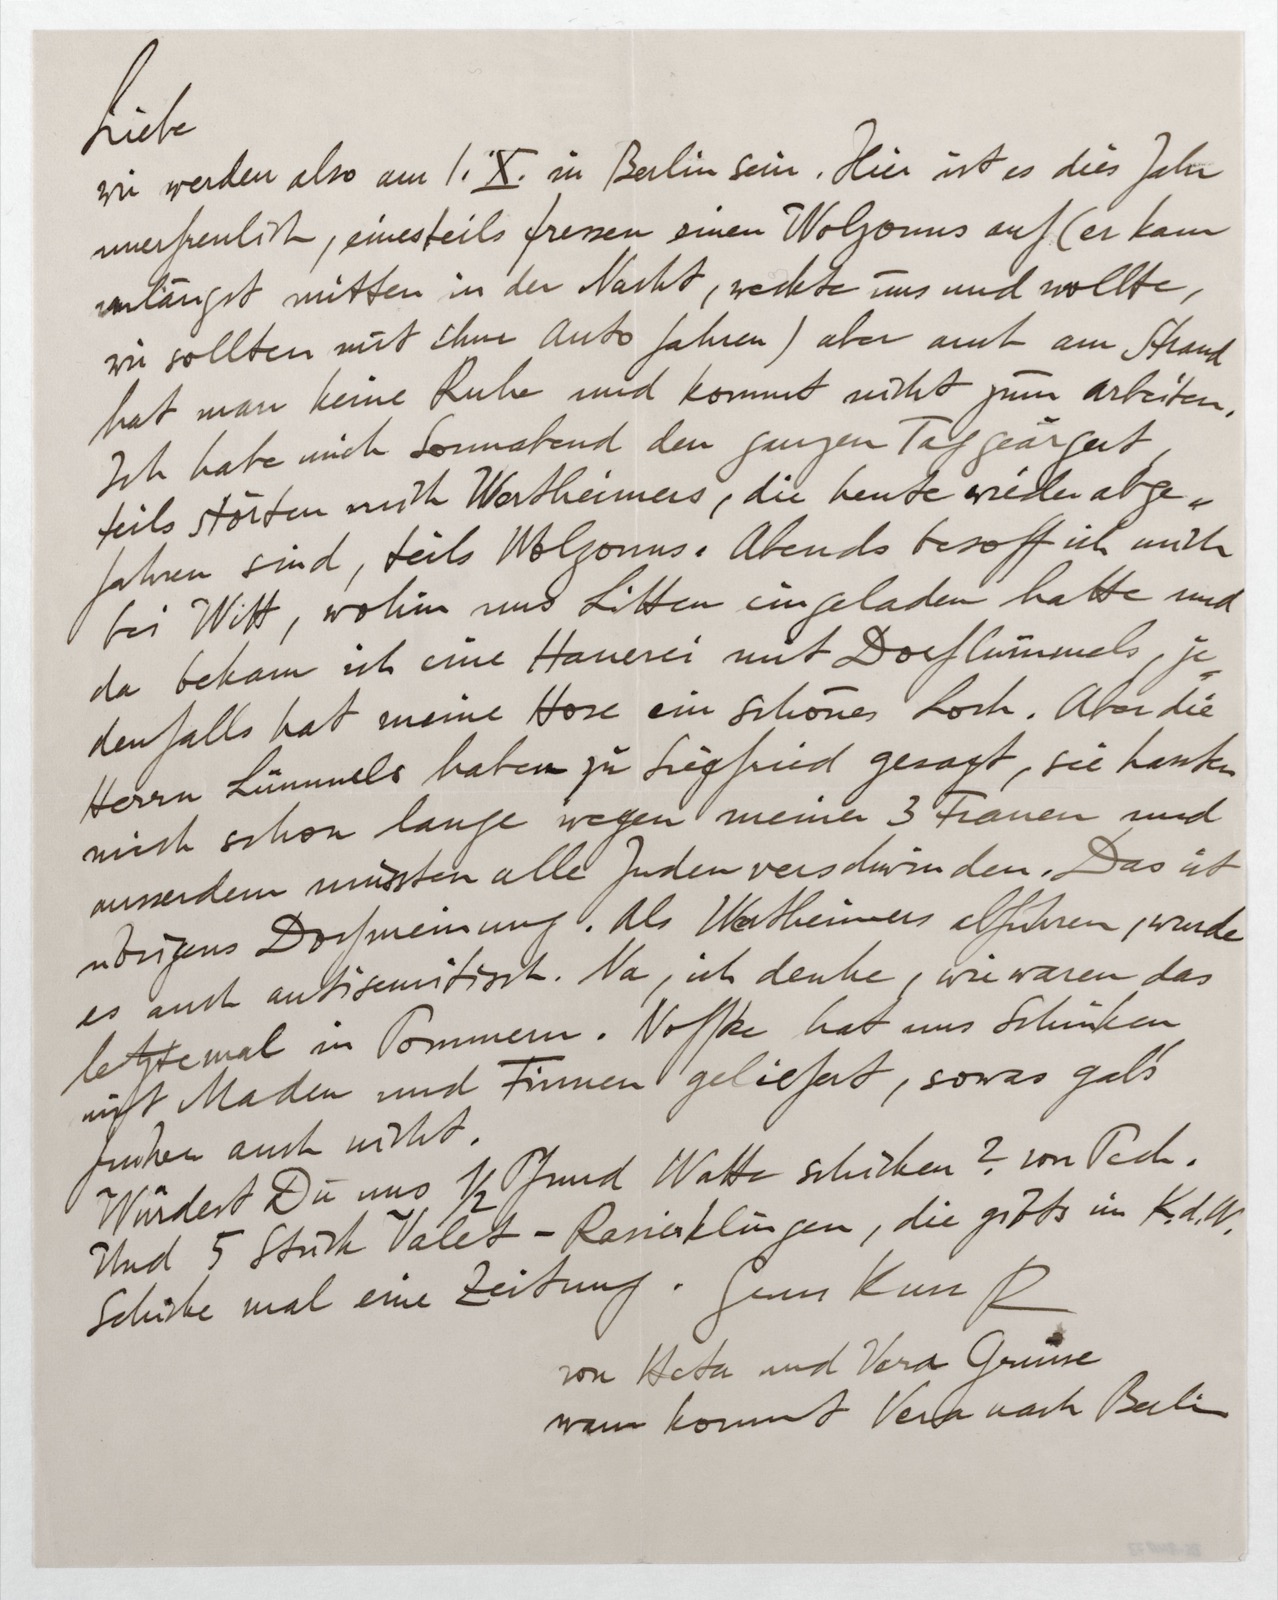 Liebe
wir werden also am 1. X. in Berlin sein. Hier ist es dies Jahr
unerfreulich, einesteils fressen einen Wolzonns auf (er kam
unlängst mitten in der Nacht, weckte uns und wollte,
wir sollten mit ihm Auto fahren) aber auch am Strand
hat man keine Ruhe und kommt nicht zum arbeiten.
Ich habe mich Sonnabend den ganzen Tag geärgert,
teils störten mich Wertheimers, die heute wieder abge„
fahren sind, teils Wolzonns. Abends besoff ich mich
bei Witt, wohin uns Litten eingeladen hatte und
da bekam ich eine Hauerei mit Dorflümmels, je„
denfalls hat meine Hose ein schönes Loch. Aber die
Herrn Lümmels haben zu Siegfried gesagt, sie hassten
mich schon lange wegen meiner 3 Frauen und
ausserdem müssten alle Juden verschwinden. Das ist
übrigens Dorfmeinung. Als Wertheimers abfuhren, wurde
es auch antisemitisch. Na, ich denke, wir waren das
letztemal in Pommern. Noffke hat uns Schinken
mit Maden und Finnen geliefert, sowas gab's
früher auch nicht.
Würdest Du uns 1/2 Pfund Watte schicken? von Tech.
Und 5 Stück Valet-Rasierklingen, die gibts im K.d.W.
Schicke mal eine Zeitung. Gruss Kuss R
von Heta und Vera Grüsse
wann kommt Vera nach Berlin